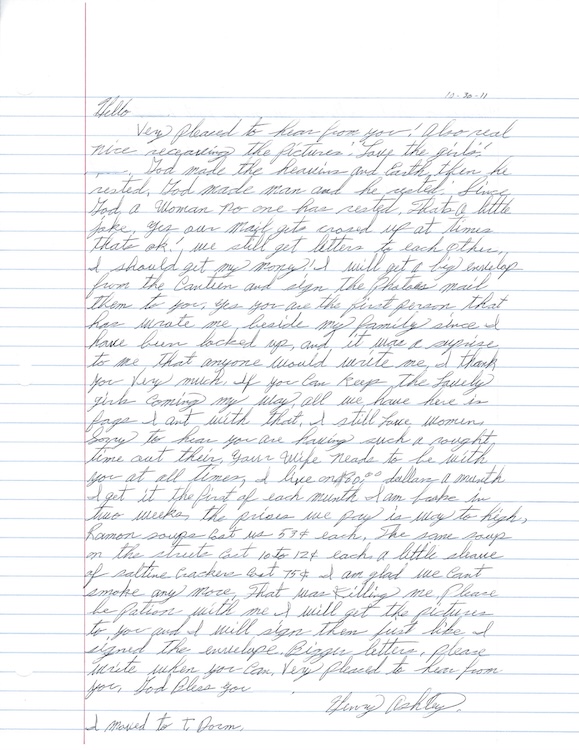 10-30-11
Hello
Very pleased to hear from you! Also real
nice recquarding the pictures! Love the girls!
God made the heavins and Earth, then he
rested, God made man and he rested. Since
God a Woman no one has rested. Thats a little
joke, yes our mail gets crosed up at times
thats ok! we still get letters to each other,
I should get my mony! I will get a big envelop
from the Canteen and sign the Photoes mail
them to you, yes you are the first person that
has wrate me, beside my family since I
have been locked up, and it was a suprise
to me that anyone would write me, I thank
you Very much, If you can keep the lovely
girls coming my way, all we have here is
fags I cant with that, I still love women,
Sorry to hear you are having such a rought
time out their, your Wife needs to be with
you at all times, I live on $60.00 dollars a month
I get it the first of each month I am broke in
two weeks, the prises we pay is way to high,
Ramon soups cost us 59¢ each, The same soup
on the streets cost 10 to 12¢ each a little sleave
of saltine crackers cost 75¢. I am glad we cant
smoke any more, that was killing me, Please
be pation with me I will get the pictures
to you and I will sign them just like I
signed the envelope, Bigger letters, please
write when you can, Very pleased to hear from
you, God Bless you
Henry Ashley.
I moved to T. Dorm.